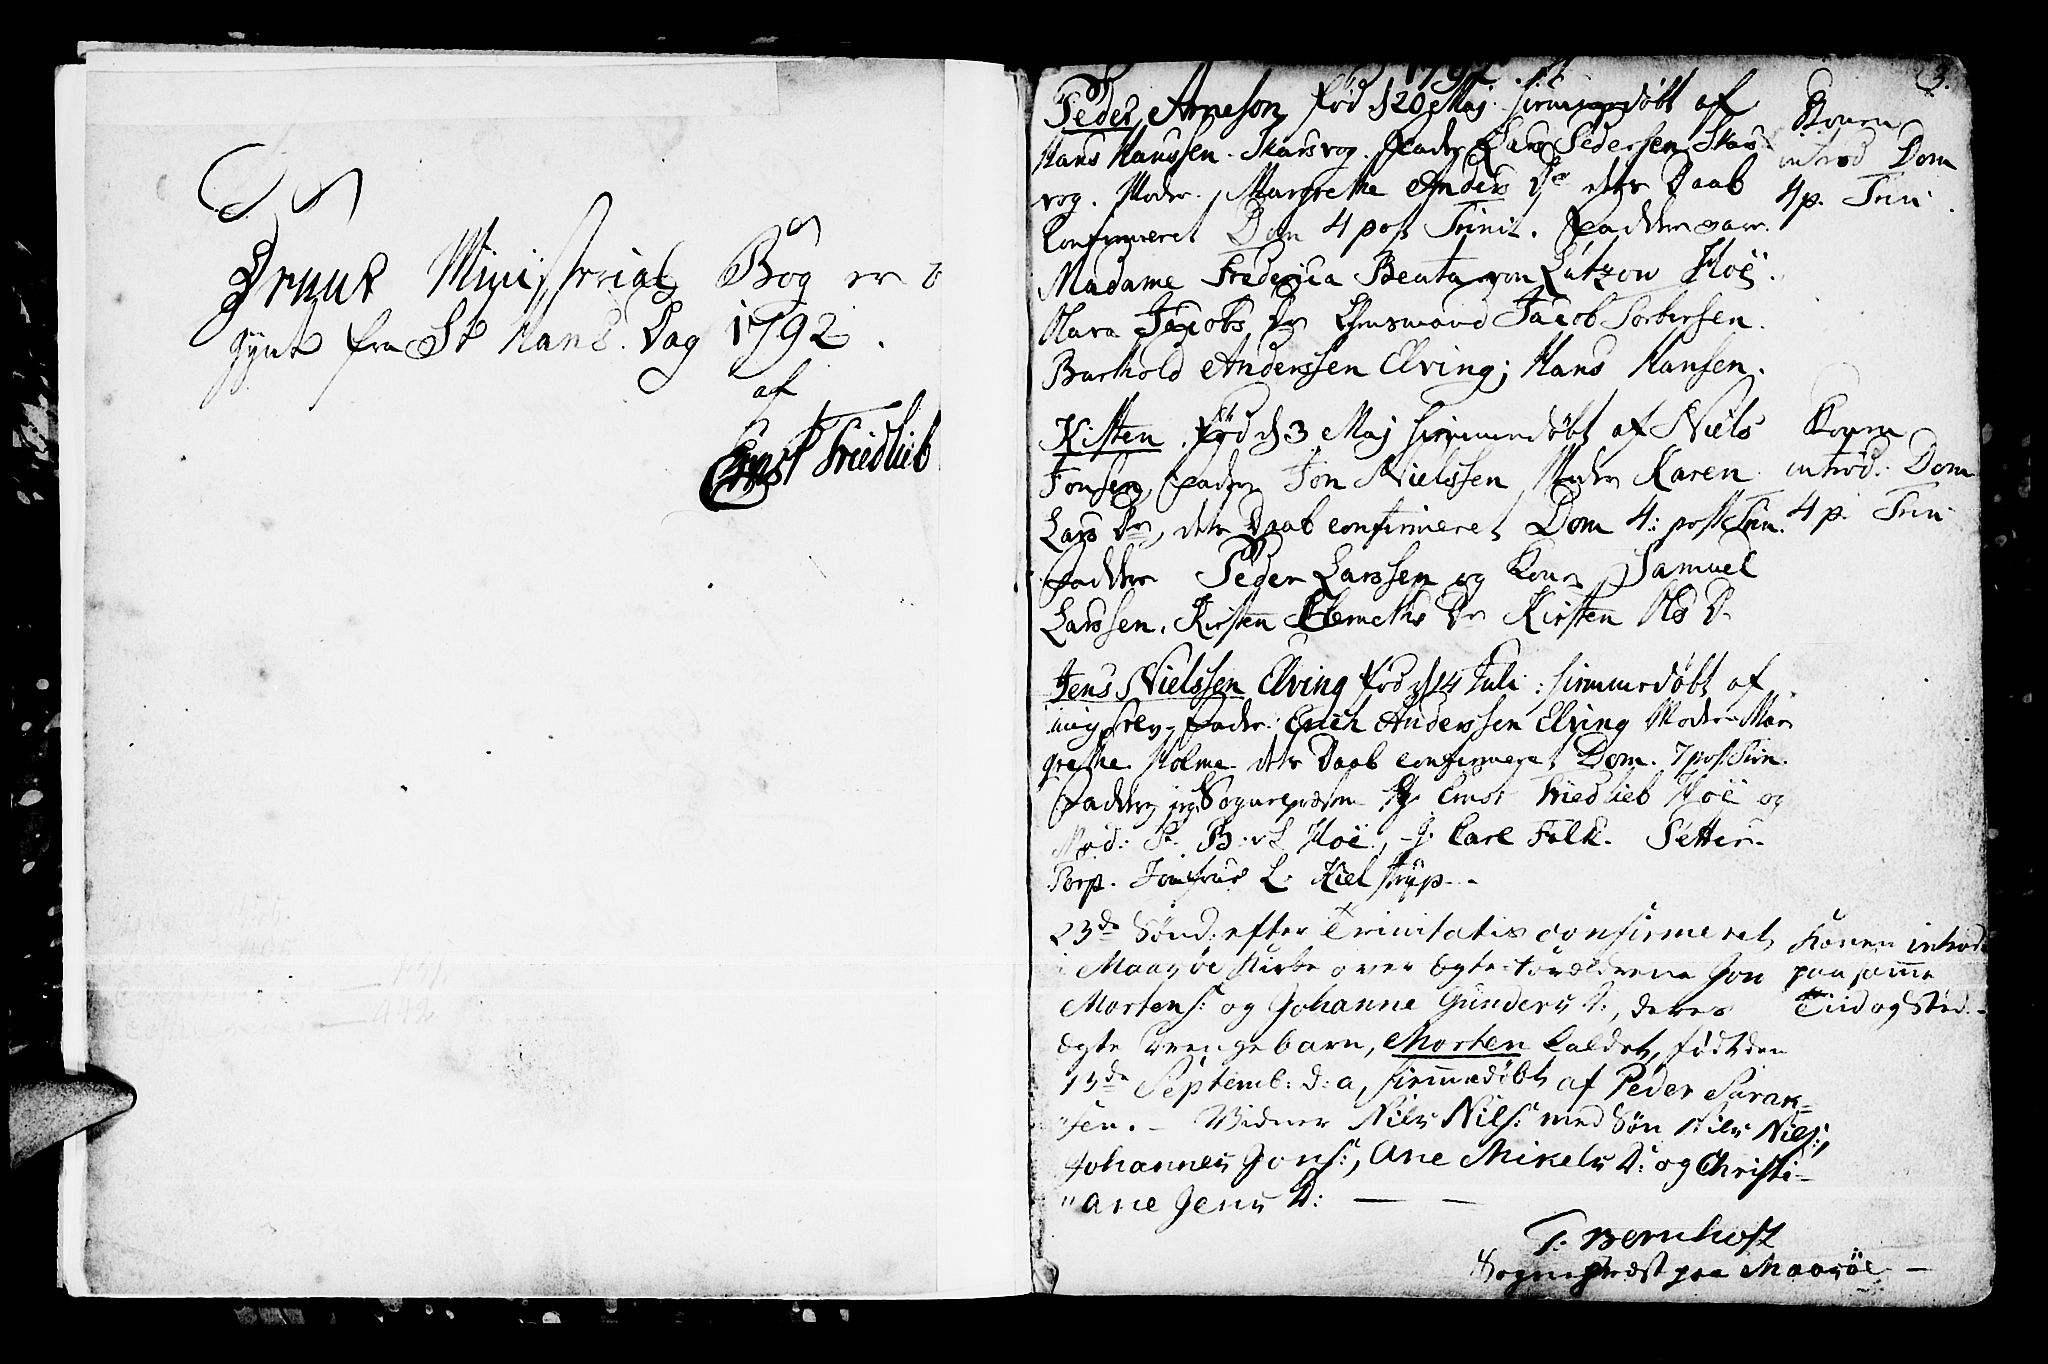 Denne Ministerial Bog er
gynt fra St Hans Dag 1792.
af
Ernst Friedlieb
3.
1792.
Peder Arneson, fød d 20 Maj. hiemmedøbt af
Hans Hanssen. Skarsvog. Fader Lars Pedersen Skars
vog. Moder. Margrethe Anders Dr dets Daab
Confirmeret Dom 4 post Trinit. Faddere vare
Madame Frederica Beata von Lützow Hoë.
Mara Jacobs Dr Lensmand Jacob Torbersen.
Barthold Anderssen Elving; Hans Hansen.
Konen
introd Dom
4 p. Trin
Kisten fød d 3 Maj hiemmedøbt af Niels
Jonsen, Fader Jon Nielssen Moder Karen
Lars Dr, dets Daab confirmeret Dom 4: post Trin.
Faddere Peder Larssen og Kone, Samuel
Larssen, Kirsten Dr Kirsten Ols D
Konen
introd: Dom
4 p. Trin
Jens Nielssen Elving fød d 14 Juli: hiemmedøbt af
mig selv Fader: Erich Anderssen Elving Moder Mar
grethe Holme dets Daab confirmeret Dom. 7 post Trin.
Faddere jeg Sognepræsten Ernst Friedlieb Hoë og
Mad: F. B. v L Hoë, J. Carl Falk. Setter.
Torp. Jomfrue L. Kielstrup.
23de Sønd: efter Trinitatis confirmeret
i Maasøe Kirke over Egte-Forældrene Jon
Mortens: og Johanne Gunders D:, deres
Egte Drengebarn, Morten kaldet, født den
13de Septemb: d: a, hiemmedøbt af Peder Sarak=
"sen. - Vidner Niels Niels: med Søn Niels Niels:,
Johannes Jons:, Ane Mikels D: og Christi-
"ane Jens D: — —
Konen introd:
paa samme
Tiid og Sted.
T. Bernhoft
Sognepræst paa Maasöe —